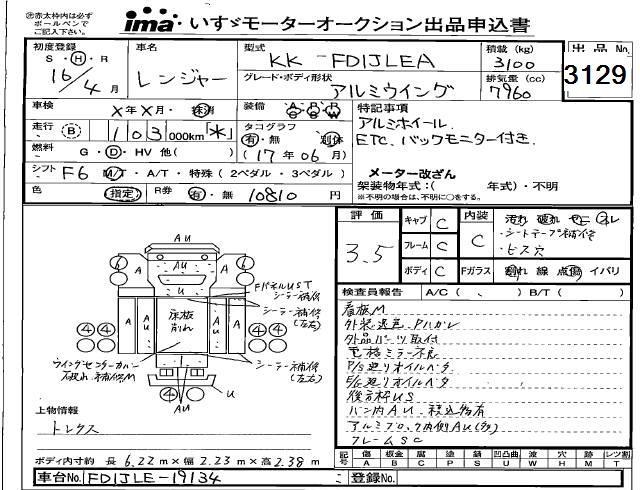 ※赤太枠内は必ず
ボールペンで
ご記入下さい。
ima いすゞモーターオークション出品申込書
初度登録
S ・ H ・ R
16/4 月
車名
レンジャー
型式
KK-FD1JLEA
積載 (kg)
3100
グレード・ボディ形状
アルミウイング
排気量 (cc)
7960
出品No.
3129
車検
X年X月・抹消
装備
A・P・R
B・B・W
走行
B
103000km「*」
タコグラフ
有・無 別体
(17年06月)
燃料
G・D・HV 他( )
シフト
F6 M/T・A/T・特殊 (2ペダル・3ペダル)
色
指定
R券
有・無 10810 円
特記事項
アルミホイール
ETC、バックモニター付き
メーター改ざん
架装物年式:( 年式)・不明
※不明の場合は、不明に○をする。
評価
3.5
キャブ C
フレーム C
ボディ C
内装
C
汚れ 破れ ヤニ コゲ
・シートテープ補修
・ビス穴
Fガラス
割れ 線 点傷 イパリ
検査員報告 A/C ( 、 ) B/T ( )
看板M
外装退色、Pハガレ
外品パーツ取付
電格ミラー不良
P/S廻りオイルベタ
E/G廻りオイルベタ
後方枠US
バン内AU、積込物有
アルミブロック内側AU(多)
フレームSC
AU
FパネルUST
シーラー補修
シーラー補修
(左右)
床板
削れ
ウイングセンターカバー
破れ、補修M
シーラー補修
(左右)
U
AU
上物情報
トレクス
ボディ内寸約 長 6.22m×幅 2.23m×高 2.38m
記号 傷 板金 腐 塗 錆 凹凸曲 波 穴 歪 M Mト レツ割
A B C P S U W H M T
車台No. FD1JLE-19134
登録No.